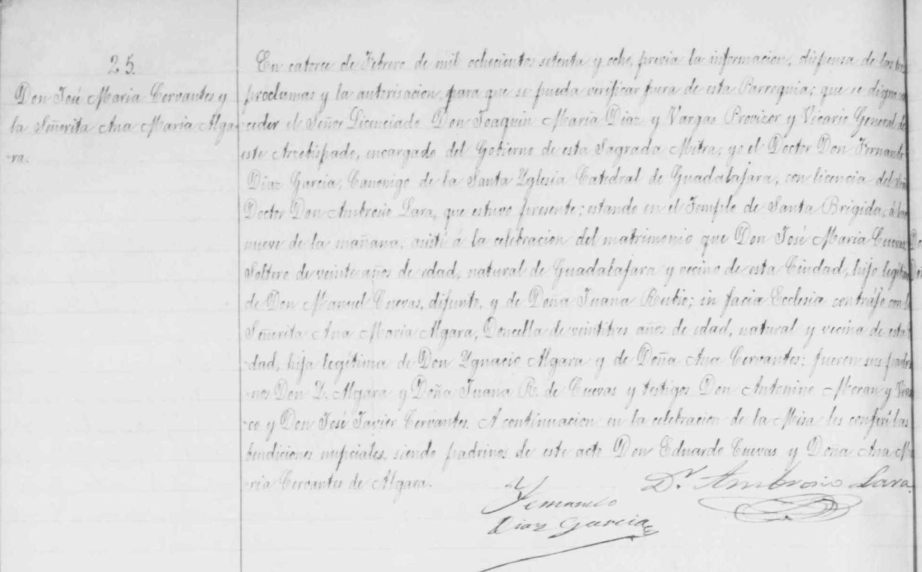 25.
Don José Maria Cervantes y
la Señorita Ana Maria Alga-
-ra.
En catorce de Febrero de mil ochocientos setenta y ocho, previa la informacion, dispensa de las tres
proclamas y la autorisacion para que se pueda verificar fuera de esta Parroquia; que se digno con-
ceder el Señor Licenciado Don Joaquin Maria Diaz y Vargas Provisor y Vicario General de
este Arzobispado, encargado del Gobierno de esta Sagrada Mitra; yo el Doctor Don Fernando
Diaz Garcia, Canonigo de la Santa Yglesia Catedral de Guadalajara, con licencia del
Doctor Don Ambrosio Lara, que estuvo presente; estando en el Templo de Santa Brigida, á las
nueve de la mañana, asisti á la celebracion del matrimonio que Don José Maria Cuevas
Soltero de veinte años de edad, natural de Guadalajara y vecino de esta Ciudad, hijo legitimo
de Don Manuel Cuevas, difunto, y de Doña Juana Rubio; in facia Ecclesia contrajo con la
Señorita Ana Maria Algara, Doncella de veintitres años de edad, natural y vecina de esta
-dad, hija legitima de Don Ygnacio Algara y de Doña Ana Cervantes: fueron sus padri-
-nos Don Y. Algara y Doña Juana R. de Cuevas y testigos Don Antonino Moran y
-co y Don José Javier Cervantes. A continuacion en la celebracion de la Misa les conferi las
bendiciones nupciales, siendo padrinos de este acto Don Eduardo Cuevas y Doña Ana Ma-
ria Cervantes de Algara.
Dr. Ambrosio Lara
Fernando
Diaz Garcia